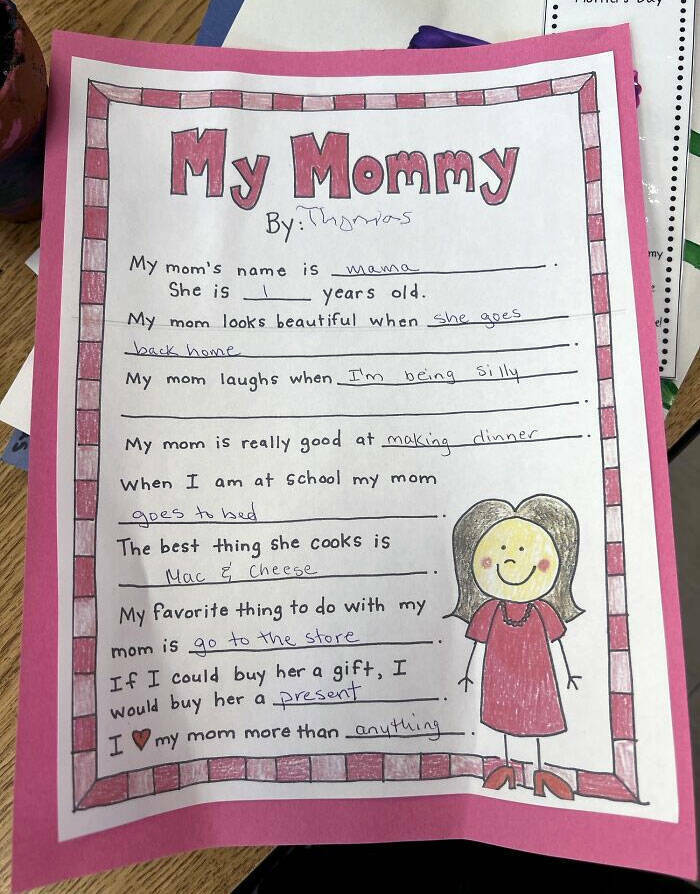 Mother's Day
My Mommy
By: Thomas
My mom's name is mama.
She is 1 years old.
My mom looks beautiful when she goes
back home.
My mom laughs when I'm being silly
.
My mom is really good at making dinner.
When I am at school my mom
goes to bed.
The best thing she cooks is
Mac & Cheese.
My favorite thing to do with my
mom is go to the store.
If I could buy her a gift, I
would buy her a present.
I ❤ my mom more than anything.
my